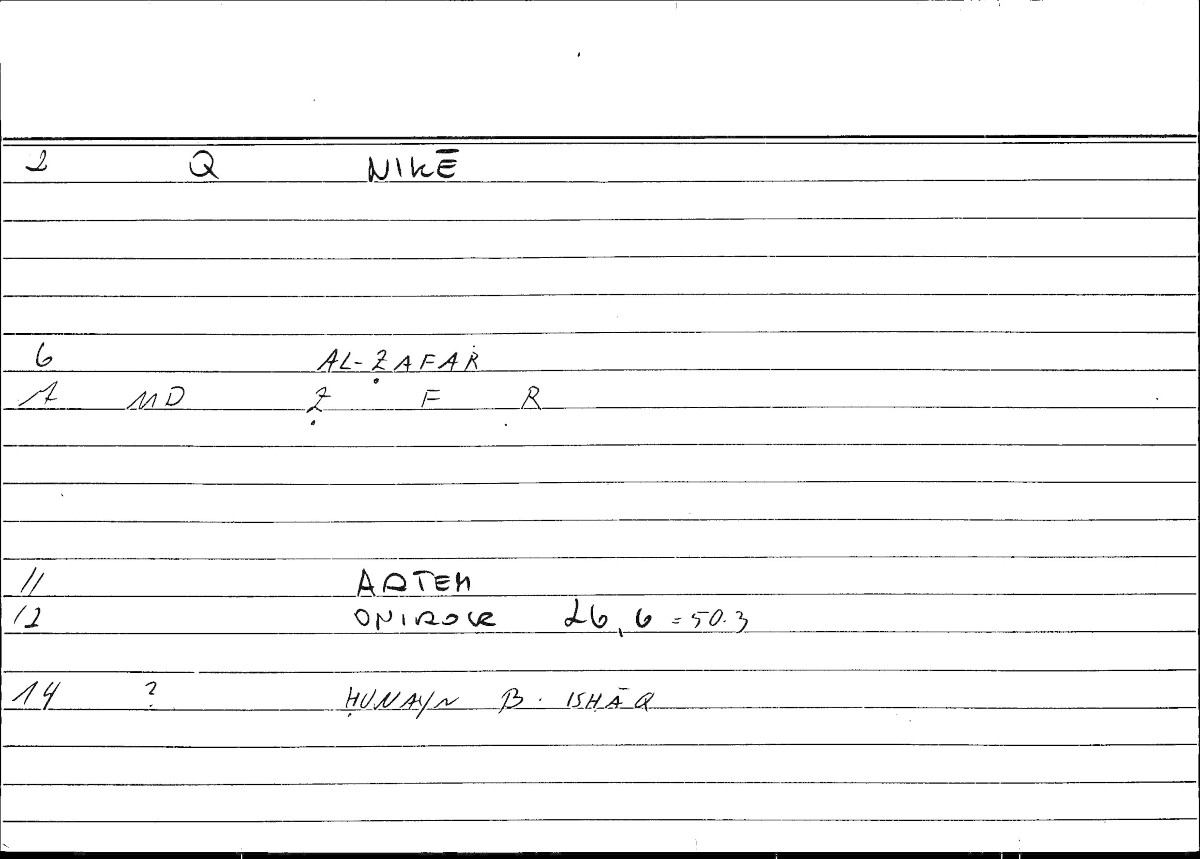 2 Q NIKĒ
6 AL-ẒAFAR
7 MD Ẓ F R
11 ARTEM
12 ONIROCR 26,6 = 50.3
14 ? ḤUNAYN B. ISHĀQ